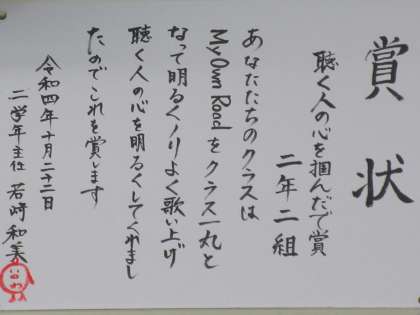 賞状
聴く人の心を掴んだで賞
二年二組
あなたたちのクラスは
My Own Roadをクラス一丸と
なって明るくノリよく歌い上げ
聴く人の心を明るくしてくれまし
たのでこれを賞します
令和四年十月二十二日
二学年主任 岩崎和美